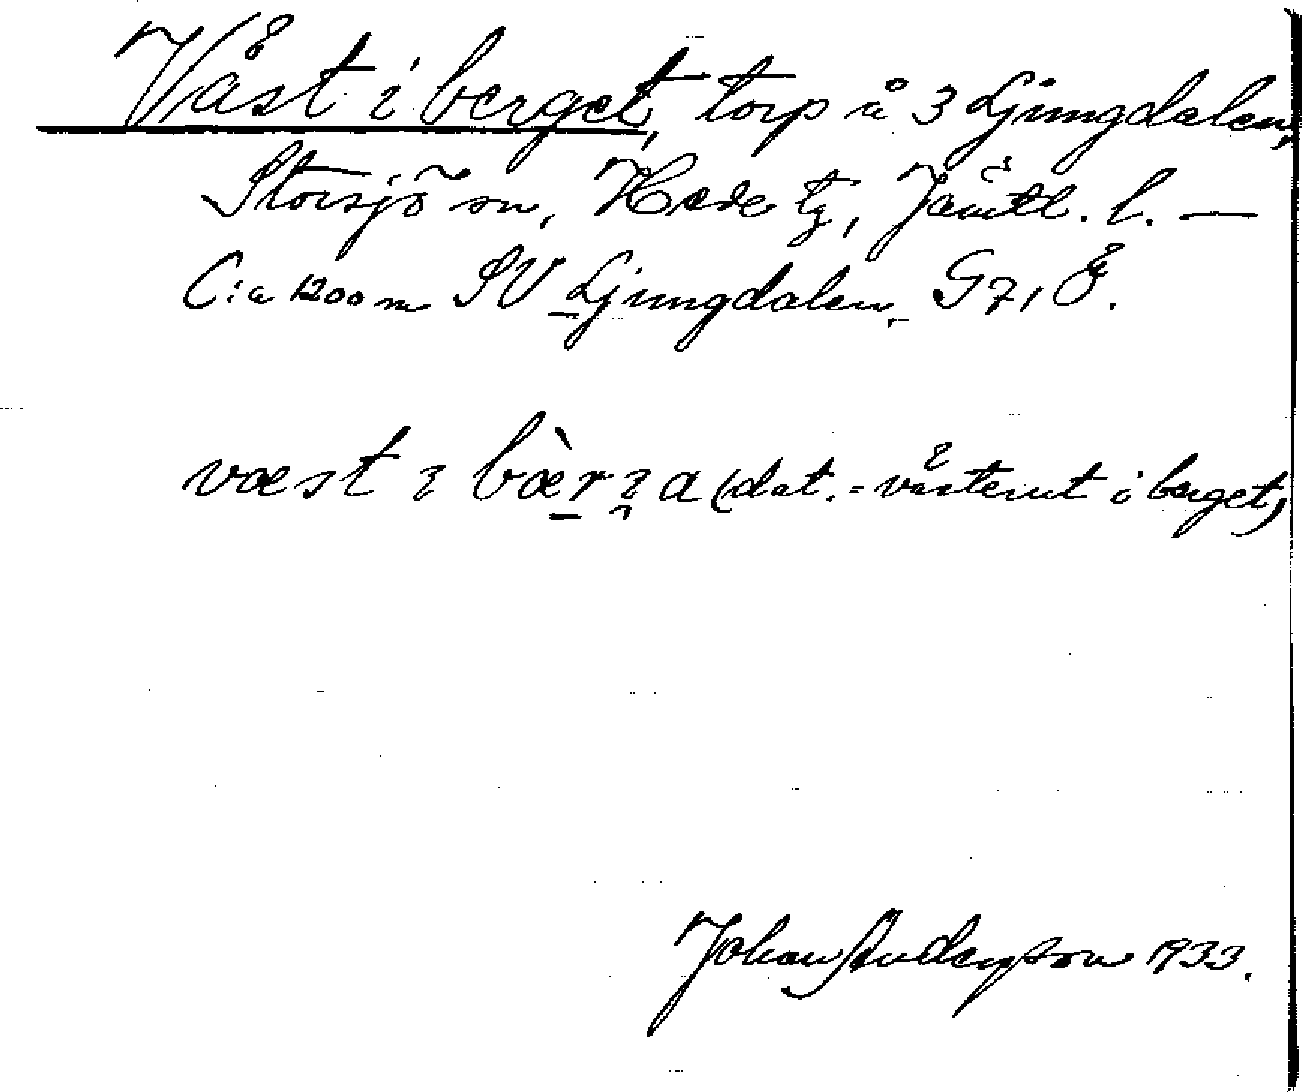 Väst i berget, torp å 3 Ljungdalen,
Storsjö sn, Hede tg, Jämtl. l. —
C:a 1200 m SV Ljungdalen. G7, Ö.
væst i bær i a (dat. = västerut i berget)
Johan Anderson 1933.